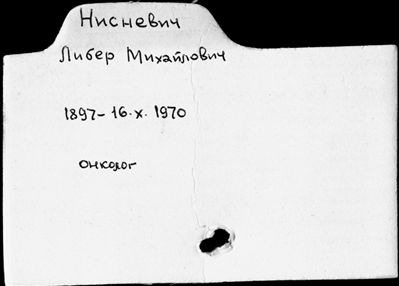 Нисневич
Либер Михайлович
1897-16.х.1970
онколог